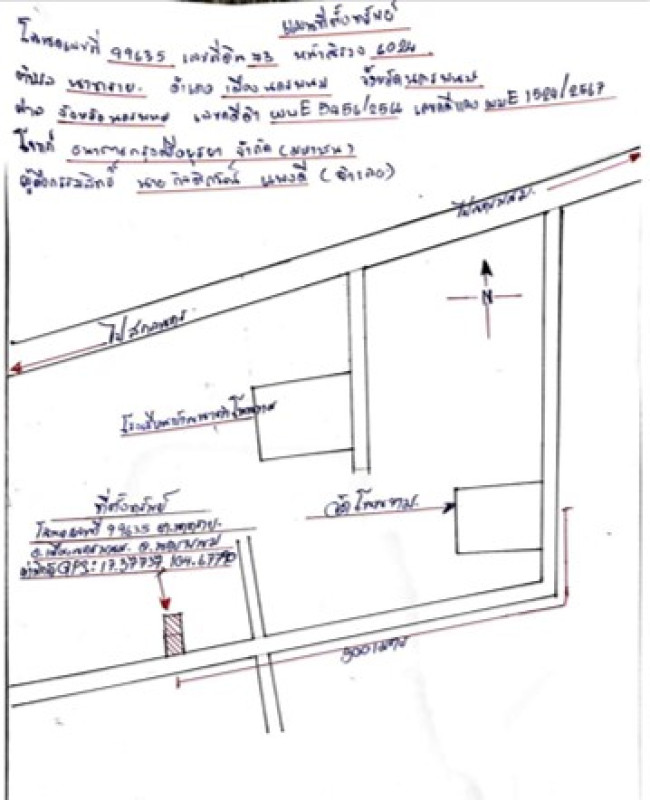 แผนที่ตั้งทรัพย์
โฉนดเลขที่ 99635 เลขที่ดิน 73 หน้าสำรวจ 6024
ตำบล นาทราย อำเภอ เมืองนครพนม จังหวัดนครพนม
ศาล จังหวัดนครพนม เลขคดีดำ ผบE 3456/2566 เลขคดีแดง ผบE 1524/2567
โจทก์ ธนาคารกรุงศรีอยุธยา จำกัด (มหาชน)
ผู้ถือกรรมสิทธิ์ นาย (จำเลย)
ไปนครพนม
N
ไปสกลนคร
วัดโพนทาม
ที่ตั้งทรัพย์
โฉนดเลขที่ 99635 ต.นาทราย
อ.เมืองนครพนม จ.นครพนม
ค่าพิกัดGPS: 17.37737, 104.67790
300เมตร